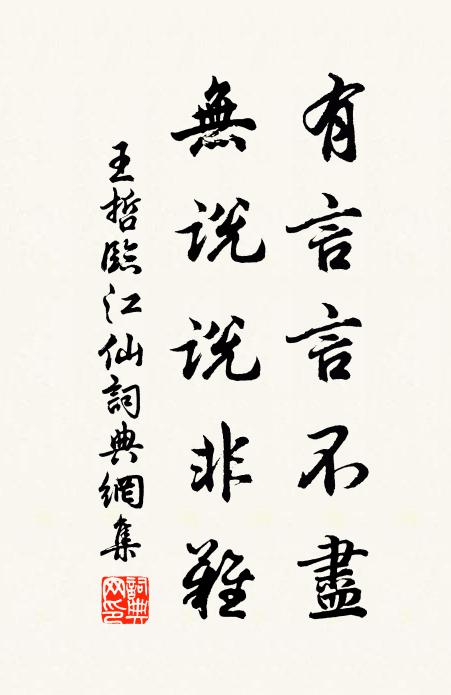 有言言不盡
無说说非難
王哲臨江仙詞典網集
詞典網印